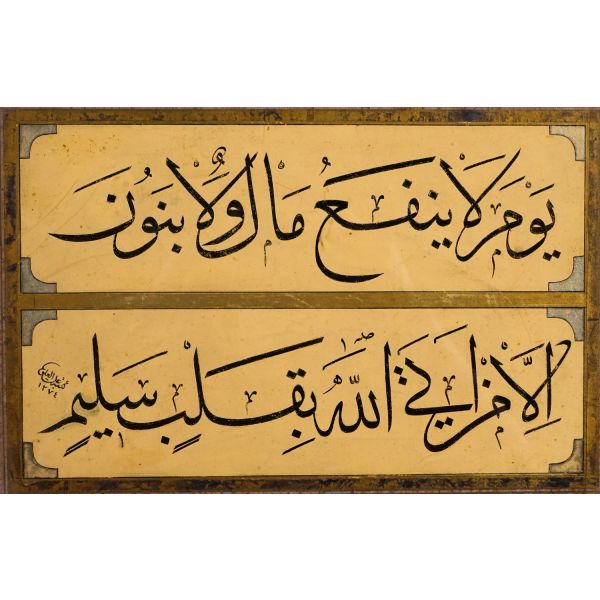 يَوْمَ لَا يَنْفَعُ مَالٌ وَلَا بَنُونَ
اِلَّا مَنْ اَتَى اللّٰهَ بِقَلْبٍ سَلِيمٍ
١٢٧٤